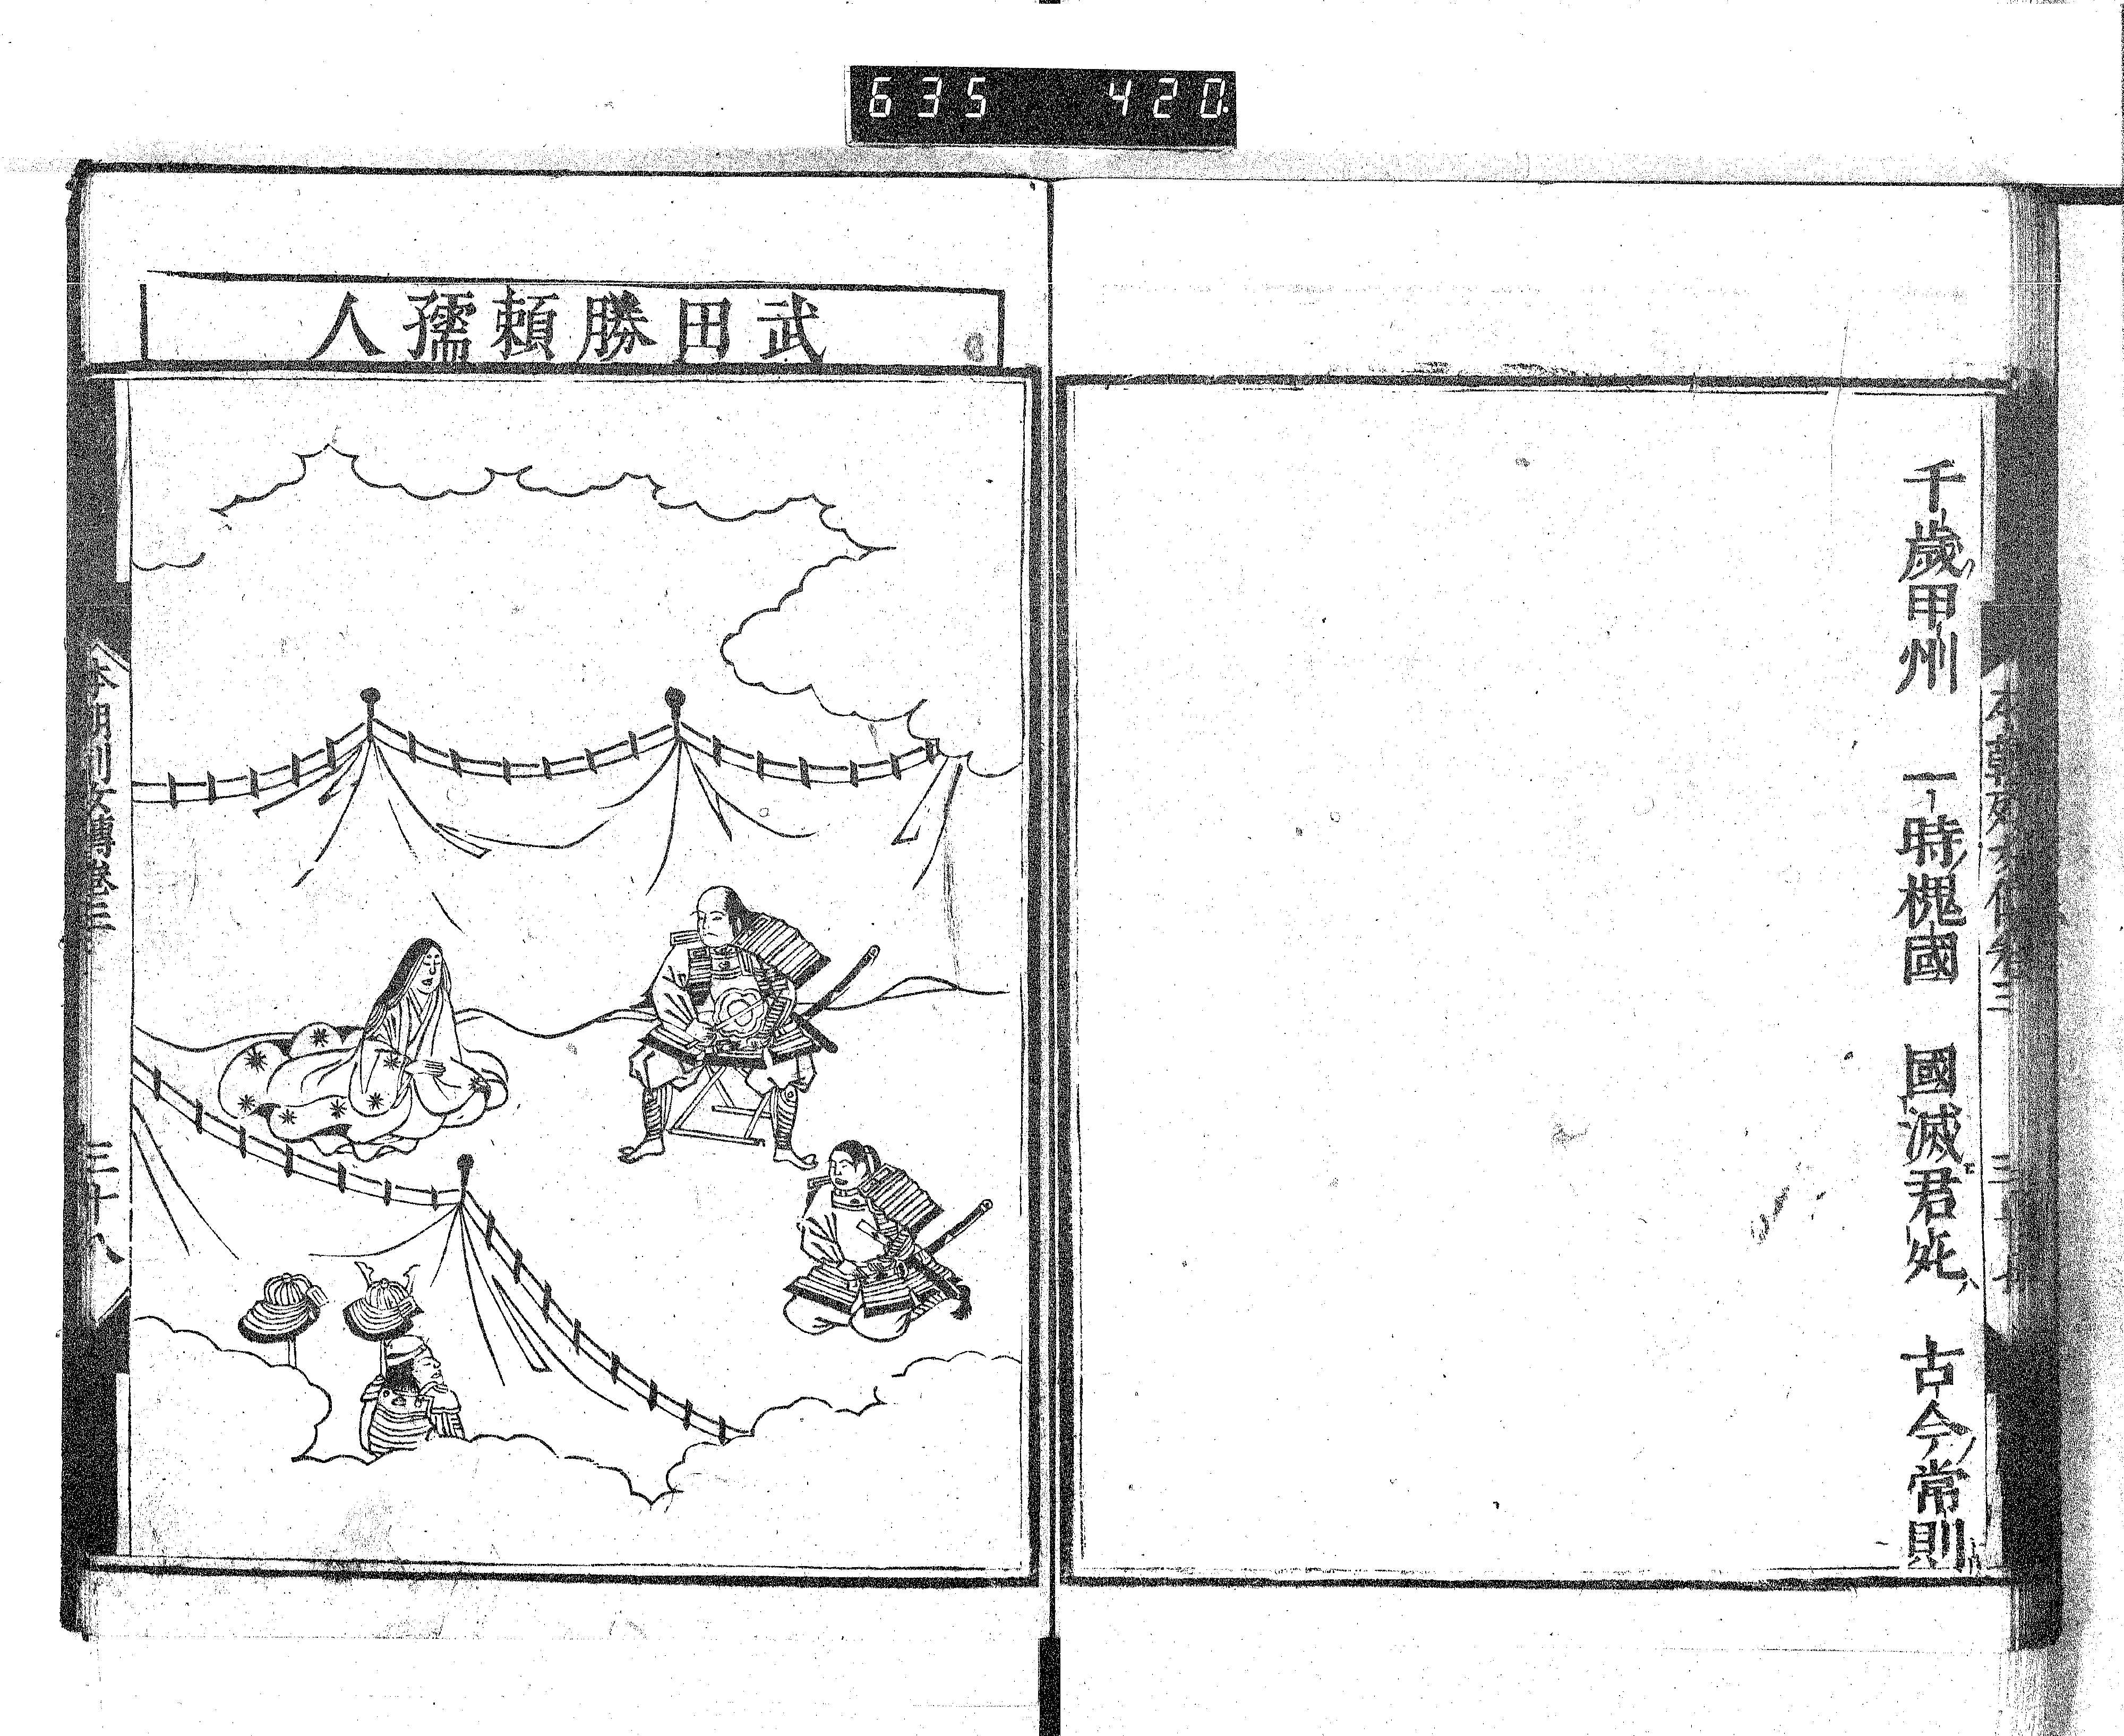 635 420
本朝列女傳卷三 三十七
千歲甲州 一時槐國 國滅君死 古今常則
武田勝頼孺人
本朝列女傳卷三 三十八